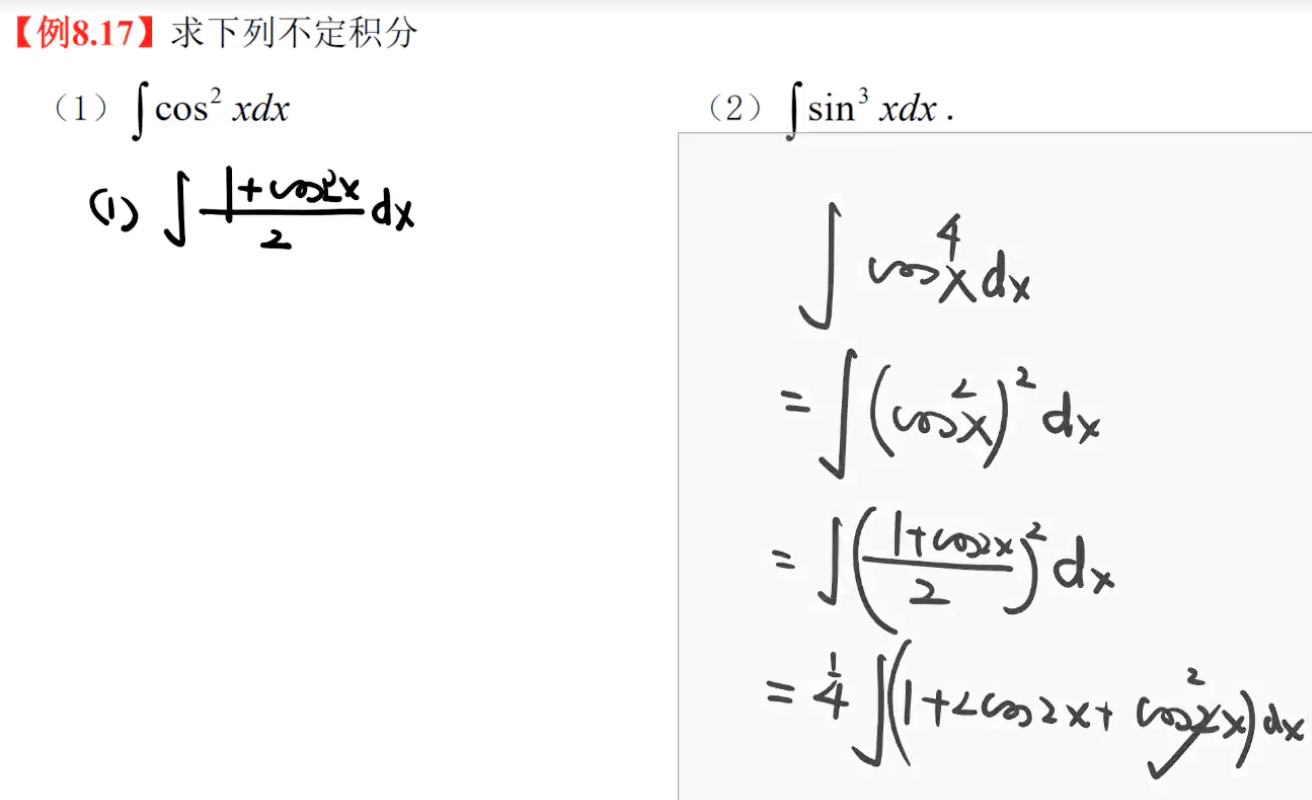 【例8.17】求下列不定积分
（1）∫cos² xdx
（2）∫sin³ xdx .
(1) ∫ (1+cos2x)/2 dx
∫ cos⁴x dx
= ∫ (cos²x)² dx
= ∫ ((1+cos2x)/2)² dx
= 1/4 ∫ (1+2cos2x+cos²2x) dx